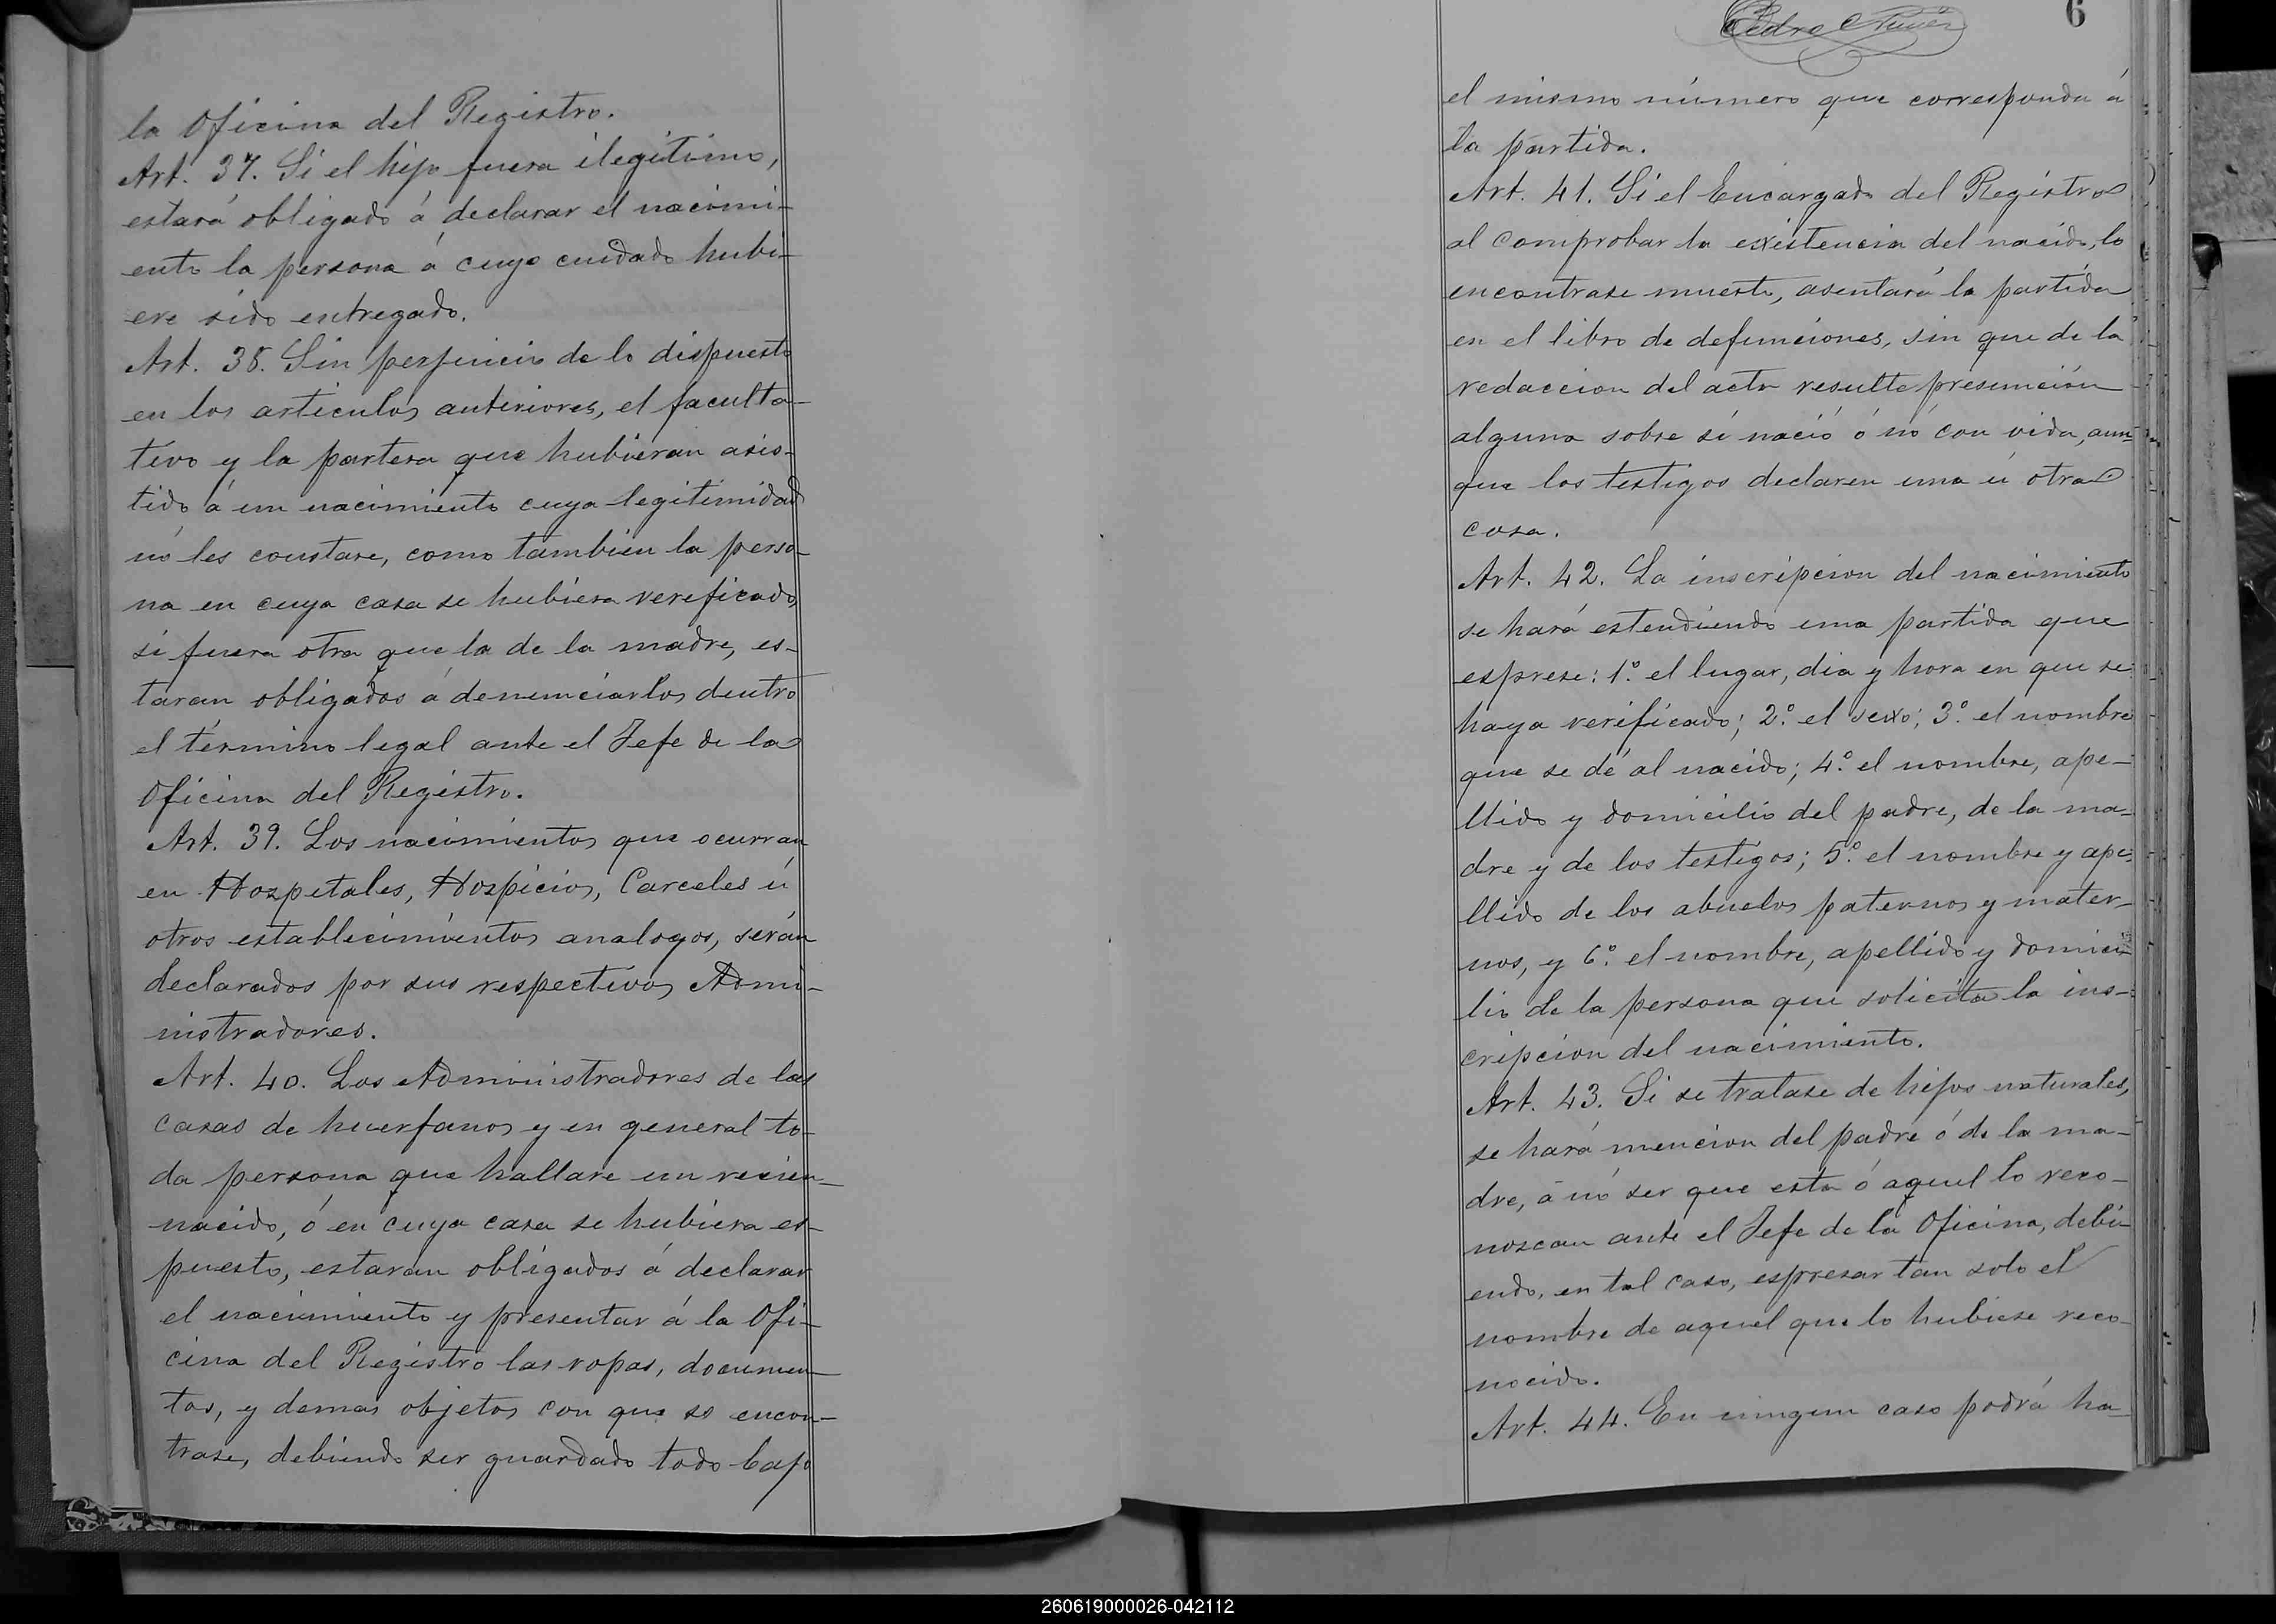 la Oficina del Registro.
Art. 37. Si el hijo fuera ilegitimo,
estará obligado á declarar el nacimi-
ento la persona á cuyo cuidado hubi-
ere sido entregado.
Art. 38. Sin perjuicio de lo dispuesto
en los articulos anteriores, el faculta-
tivo y la partera que hubieran asis-
tido á un nacimiento cuya legitimidad
nó les constare, como tambien la perso-
na en cuya casa se hubiera verificado,
si fuera otra que la de la madre, es-
taran obligados á denunciarlos dentro
el término legal ante el Jefe de la
Oficina del Registro.
Art. 39. Los nacimientos que ocurran
en Hospitales, Hospicios, Carceles ú
otros establecimientos analogos, serán
declarados por sus respectivos Admi-
nistradores.
Art. 40. Los Administradores de las
casas de huerfanos y en general to-
da persona que hallare un recien-
nacido, ó en cuya casa se hubiera es-
puesto, estaran obligados á declarar
el nacimiento y presentar á la Ofi-
cina del Registro las ropas, documen-
tos, y demas objetos con que se encon-
trase, debiendo ser guardado todo bajo
Pedro Nuñez
6
el mismo número que corresponda á
la partida.
Art. 41. Si el Encargado del Registro
al comprobar la existencia del nacido, lo
encontrase muerto, asentará la partida
en el libro de defunciones, sin que de la
redaccion del acta resulte presunción
alguna sobre si nació ó nó con vida, aun-
que los testigos declaren una ú otra
cosa.
Art. 42. La inscripcion del nacimiento
se hará estendiendo una partida que
esprese: 1.º el lugar, dia y hora en que se
haya verificado; 2.º el sexo; 3.º el nombre
que se dé al nacido; 4.º el nombre, ape-
llido y domicilio del padre, de la ma-
dre y de los testigos; 5.º el nombre y ape-
llido de los abuelos paternos y mater-
nos, y 6.º el nombre, apellido y domici-
lio de la persona que solicita la ins-
cripcion del nacimiento.
Art. 43. Si se tratase de hijos naturales,
se hará mencion del padre ó de la ma-
dre, á nó ser que esta ó aquel lo reco-
noscan ante el Jefe de la Oficina, debi-
endo, en tal caso, espresar tan solo el
nombre de aquel que lo hubiese reco-
nocido.
Art. 44. En ningun caso podrá ha-
260619000026-042112